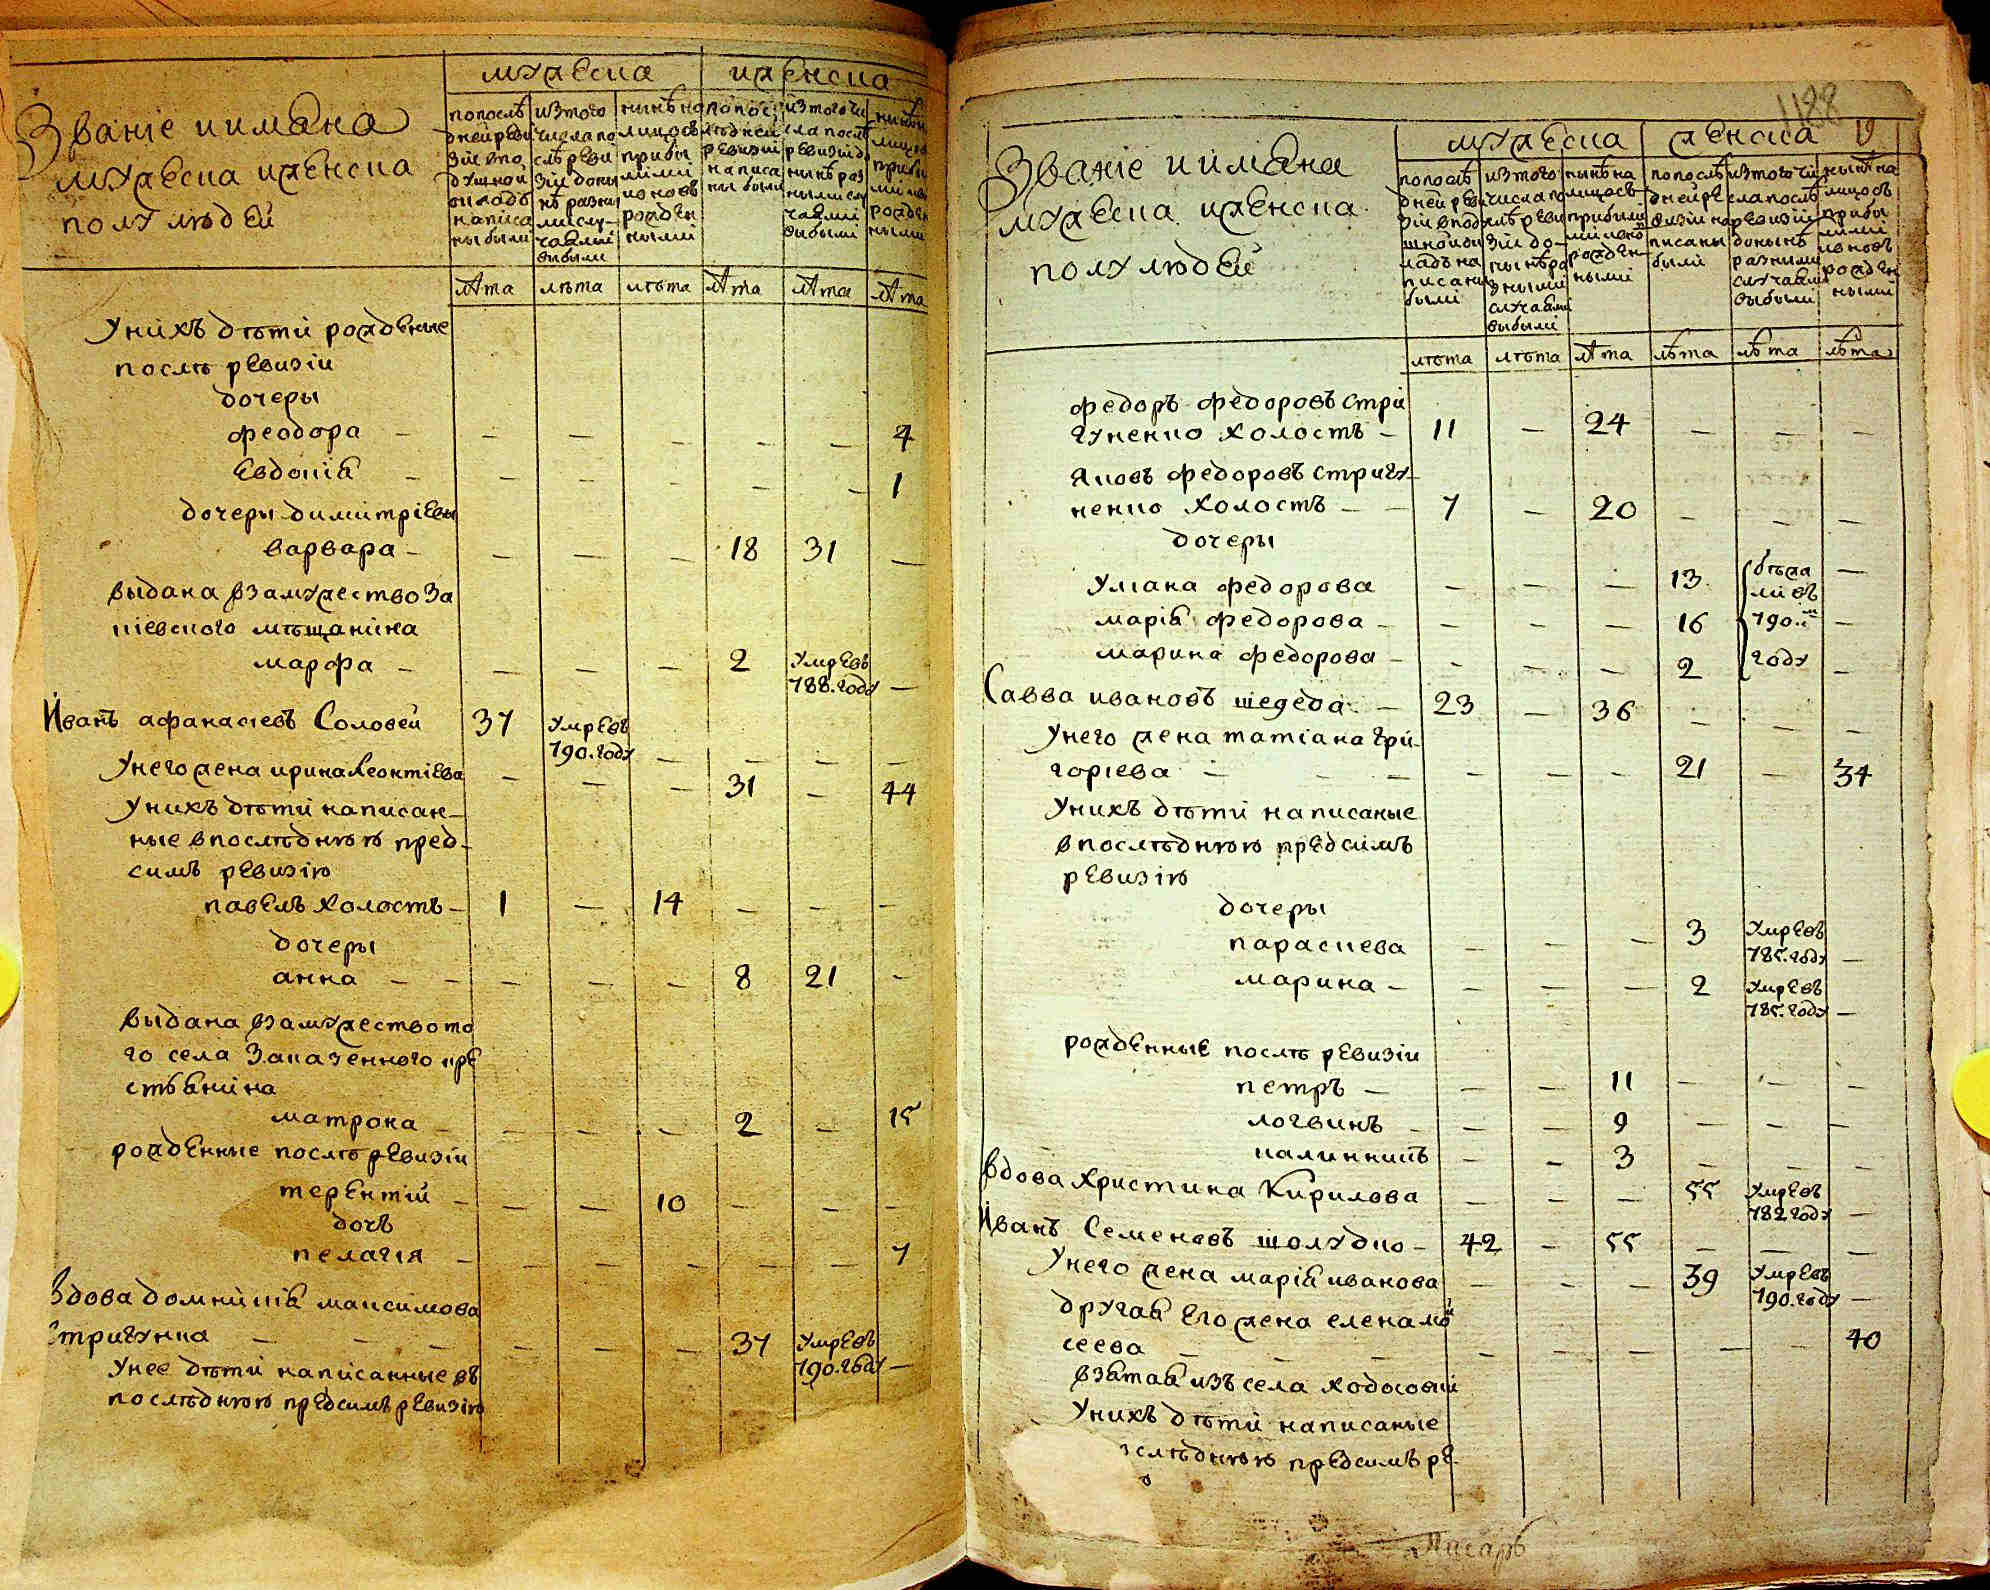 Званіе иимѧна
мужеска иженска
полу людей
мужеска
женска
попослѣ
дней реви
зіи впо
душной
окладъ
написа
ны были
изтого
числа по
слѣ реви
зіи доны
нѣ разны
ми слу-
чаѧми
выбыли
нынѣ на
лицо съ
прибы
лыми
и новъ
рожден
ными
попос
лѣдней
ревизіи
написа
ны были
изтого чи
сла послѣ
ревизіи до
нынѣ раз
ными слу
чаѧми
выбыли
лѣта лѣта лѣта лѣта лѣта лѣта
Унихъ дѣти рожденые
послѣ ревизіи
дочеры
феодора – – – – – – 4
Евдокіѧ – – – – – – 1
дочеры димитріевы
варвара – – – – 18 31 –
выдана взамужество за
кіевского мѣщанина
марфа – – – – 2 умре въ
788. году –
Иванъ афанасіевъ Соловей 37 умре въ – – – –
790. году
Унего жена ирина леонтіева – – – 31 – 44
Унихъ дѣти написан-
ные впослѣднюю пред-
симъ ревизію
павелъ холостъ – 1 – 14 – – –
дочеры
анна – – – – – 8 21 –
выдана взамужество то
го села Заказенного кре
стьѧнина
матрона – – – – 2 – 15
рожденные послѣ ревизіи
терентій – – – 10 – – –
дочь
пелагія – – – – – – 7
Вдова домникіѧ максимова
Стригунка – – – – – – 37 умре въ
790. году –
Унее дѣти написанные въ
послѣднюю предсимъ ревизію
1188
19
Званіе иимѧна
мужеска иженска
полу людей
мужеска
женска
попослѣ
дней реви
зіи впод
шной ок
ладъ на
писаны
были
изтого
числа по
слѣ реви
зіи до-
нынѣ ра
зными
случаѧми
выбыли
нынѣ на
лицо съ
прибылы
ми и новъ
рожден-
ными
попослѣ
дней ре
визіи на
писаны
были
изтого чи
сла послѣ
ревизіи
донынѣ
разными
случаѧми
выбыли
нынѣ на
лицо съ
прибы
лыми
и новъ
рожден
ными
лѣта лѣта лѣта лѣта лѣта лѣта
федоръ федоровъ стри
гуненко холостъ – 11 – 24 – – –
Яковъ федоровъ стригу-
ненко холостъ – – 7 – 20 – – –
дочеры
уліана федорова – – – 13 бѣжа –
ли въ
маріѧ федорова – – – – 16 790.м –
марина федорова – – – – 2 году –
Савва ивановъ шедеда – 23 – 36 – – –
Унего жена татіана гри-
горіева – – – – – – 21 – 34
Унихъ дѣти написаные
впослѣднюю предсимъ
ревизію
дочеры
параскева – – – 3 умре въ
785. году –
марина – – – – 2 умре въ
785. году –
рожденные послѣ ревизіи
петръ – – – 11 – – –
логвинъ – – – 9 – – –
калинникъ – – 3 – – –
Вдова христина Кирилова – – – 55 умре въ
782 году –
Иванъ Семеновъ шолудко – 42 – 55 – – –
Унего жена маріѧ иванова – – – 39 умре въ
790. году –
другаѧ его жена елена мои
сеева – – – – – – – – 40
взѧтаѧ изъ села ходосовки
Унихъ дѣти написаные
слѣднюю предсимъ ре-
Писарь